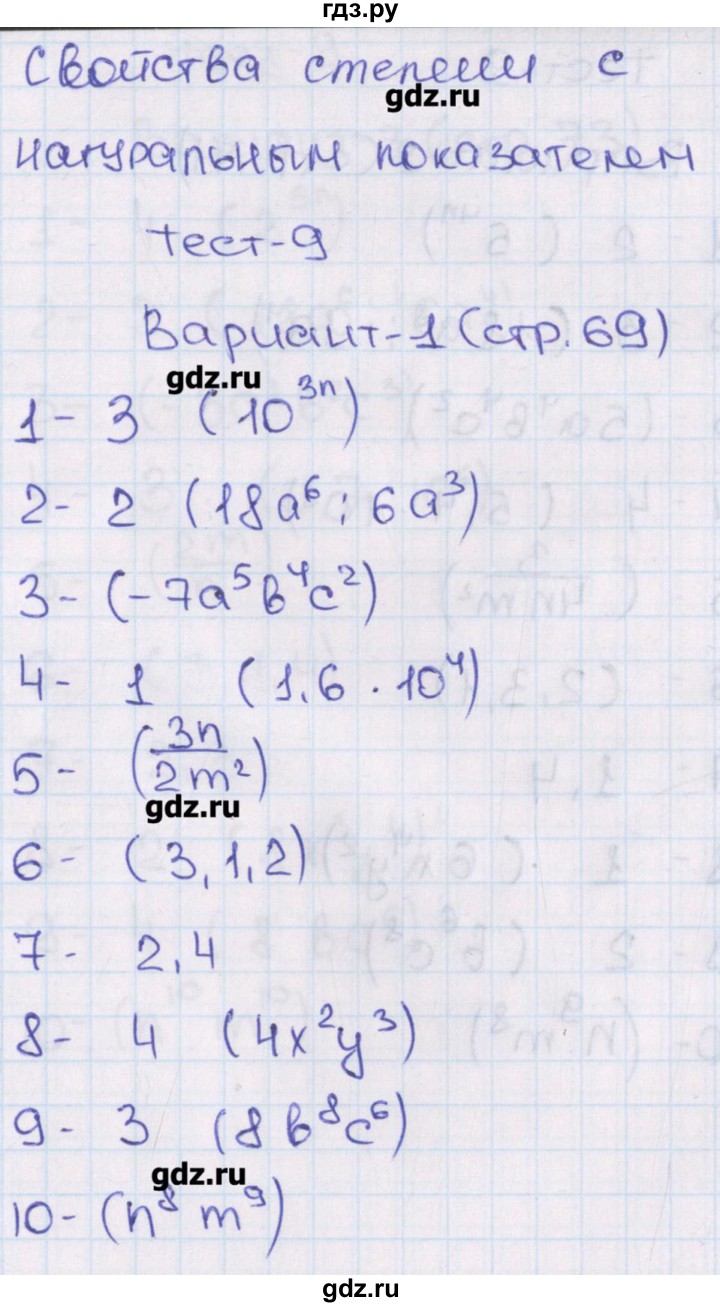 гдз.ру
Свойства степени с
gdz.ru
натуральным показателем
тест-9
Вариант-1 (стр. 69)
gdz.ru
1- 3 (10³ⁿ)
2- 2 (18a⁶ : 6a³)
3- (-7a⁵b⁴c²)
4- 1 (1,6 · 10⁴)
5- (3n/2m²)
gdz.ru
6- (3,1,2)
7- 2,4
8- 4 (4x²y³)
9- 3 (8b⁸c⁶)
gdz.ru
10- (n⁸m⁹)
gdz.ru